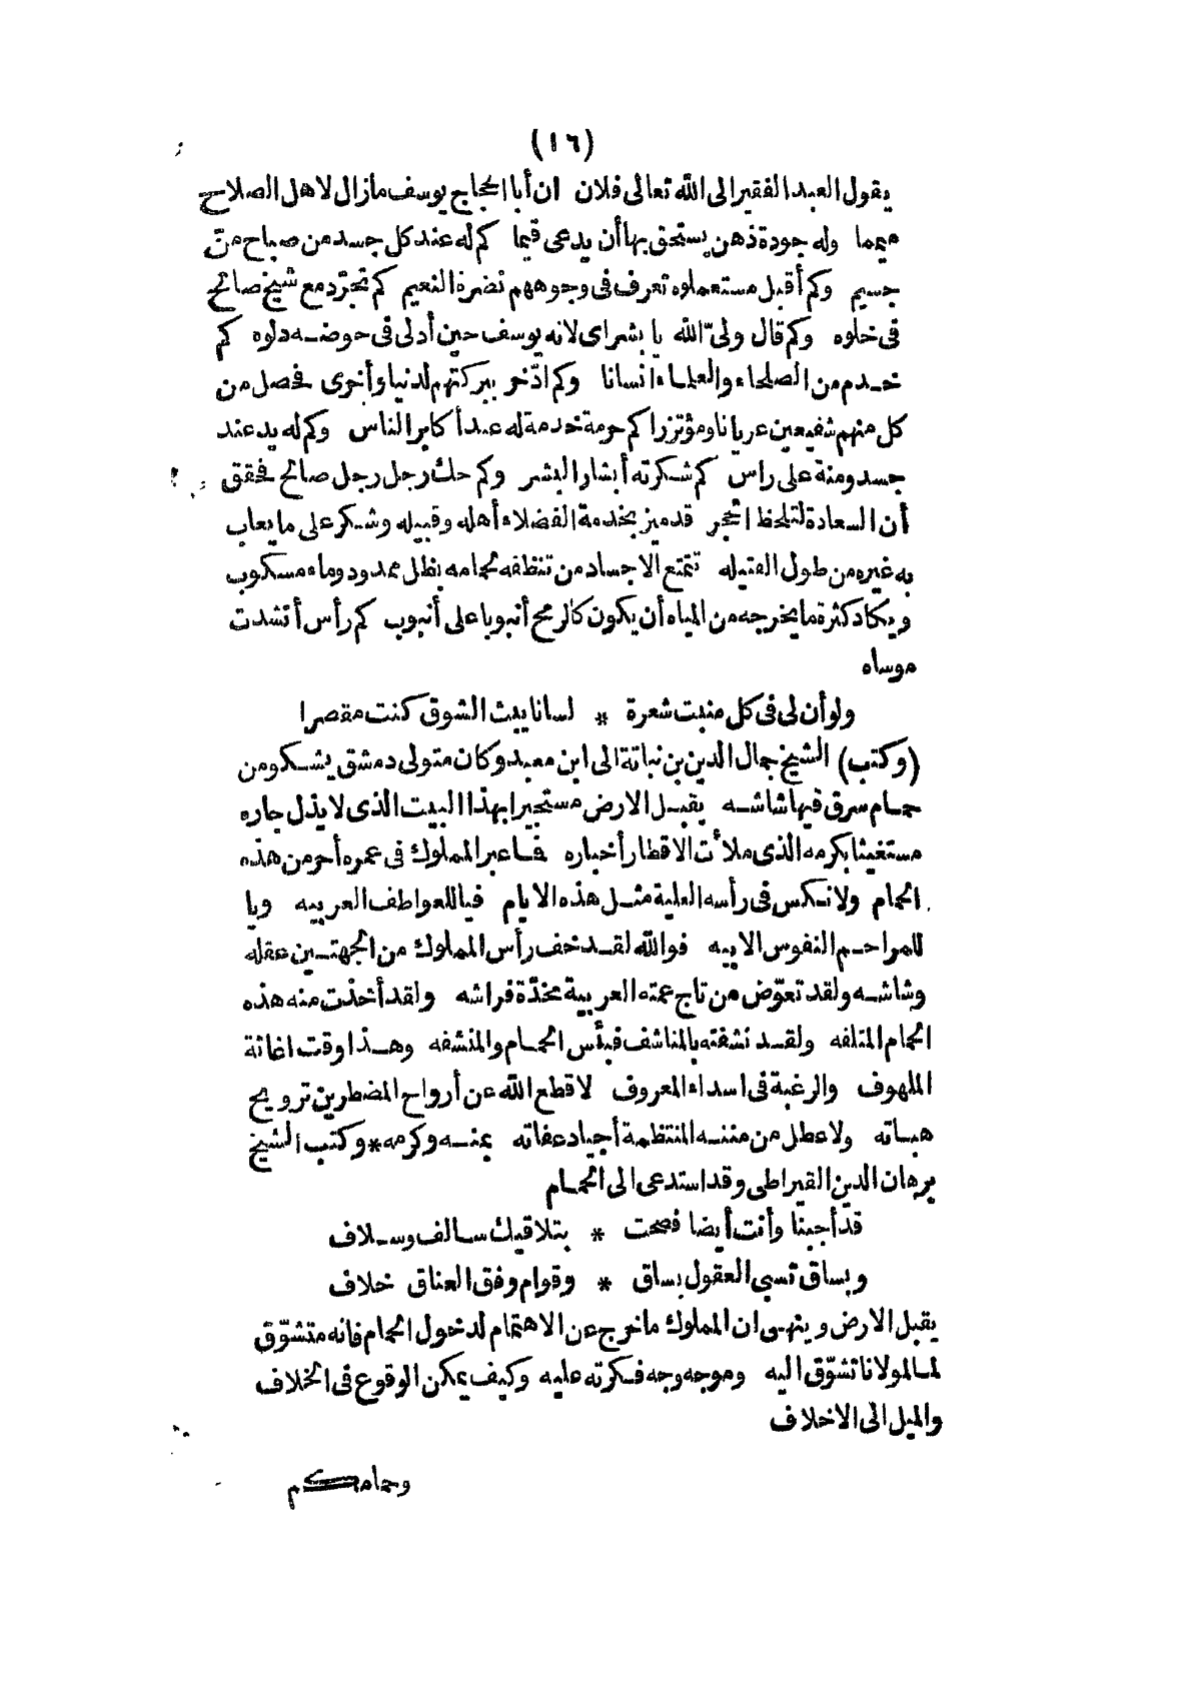 (١٦)
يقول العبد الفقير الى الله تعالى فلان ان أبا الحجاج يوسف مازال لاهل الصلاح
ميما وله جودة ذهن يستحق بها أن يدعى قيما كم له عند كل جسد من صباح منّ
جسيم وكم أقبل مستعملوه تعرف فى وجوههم نضرة النعيم كم تجرّد مع شيخ صالح
فى خلوه وكم قال ولىّ الله يا بشراى لانه يوسف حين أدلى فى حوضه دلوه كم
خدم من الصلحاء والعلماء انسانا وكم ادّخر ببركتهم لدنيا وأخرى فحصل من
كل منهم شفيعين عريانا ومؤتزرا كم حرمة خدمة له عند أكابر الناس وكم له يد عند
جسد ومنة على راس كم شكرته أبشار البشر وكم حك رجل رجل صالح فحقق
أن السعادة لتلحظ الحجر قد ميز بخدمة الفضلاء أهله وقبيله وشكر على ما يعاب
به غيره من طول الفتيله تتمتع الاجساد من تنظفه لحمامه بظل ممدود وماء مسكوب
ويكاد كثرة ما يخرجه من المياه أن يكون كالرمح أنبوبا على أنبوب كم رأس أنشدت
موساه
ولو أن لى فى كل منبت شعرة * لسانا يبث الشوق كنت مقصرا
(وكتب) الشيخ جمال الدين بن نباتة الى ابن معبد وكان متولى دمشق يشكو من
حمام سرق فيها شاشه يقبل الارض مستجيرا بهذا البيت الذى لا يذل جاره
مستغيثا بكرمه الذى ملأت الاقطار أخباره فما عبر المملوك فى عمره أحر من هذه
الحمام ولا نكس فى رأسه العلية مثل هذه الايام فياللعواطف العربيه ويا
للمراحم النفوس الابيه فوالله لقد خف رأس المملوك من الجهتين عقله
وشاشه ولقد تعوّض من تاج عمته العربية مخدّة فراشه ولقد أخذت منه هذه
الحمام المتلفه ولقد نشفته بالمناشف فبأس الحمام والمنشفه وهذا وقت اغاثة
الملهوف والرغبة فى اسداء المعروف لا قطع الله عن أرواح المضطرين ترويح
هباته ولا عطل من مننه المنتظمة أجياد عفاته بمنه وكرمه * وكتب الشيخ
برهان الدين القيراطى وقد استدعى الى الحمام
قد أجبنا وأنت أيضا فصحت * بتلاقيك سالف وسلاف
وبساق تسبى العقول بساق * وقوام وفق العناق خلاف
يقبل الارض وينهى ان المملوك ما خرج عن الاهتمام لدخول الحمام فانه متشوّق
لما لمولانا تشوّق اليه وموجه وجه فكرته عليه وكيف يمكن الوقوع فى الخلاف
والميل الى الاخلاف
وحمامكم